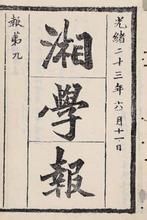 光緒二十三年六月十一日
湘學報
報第九